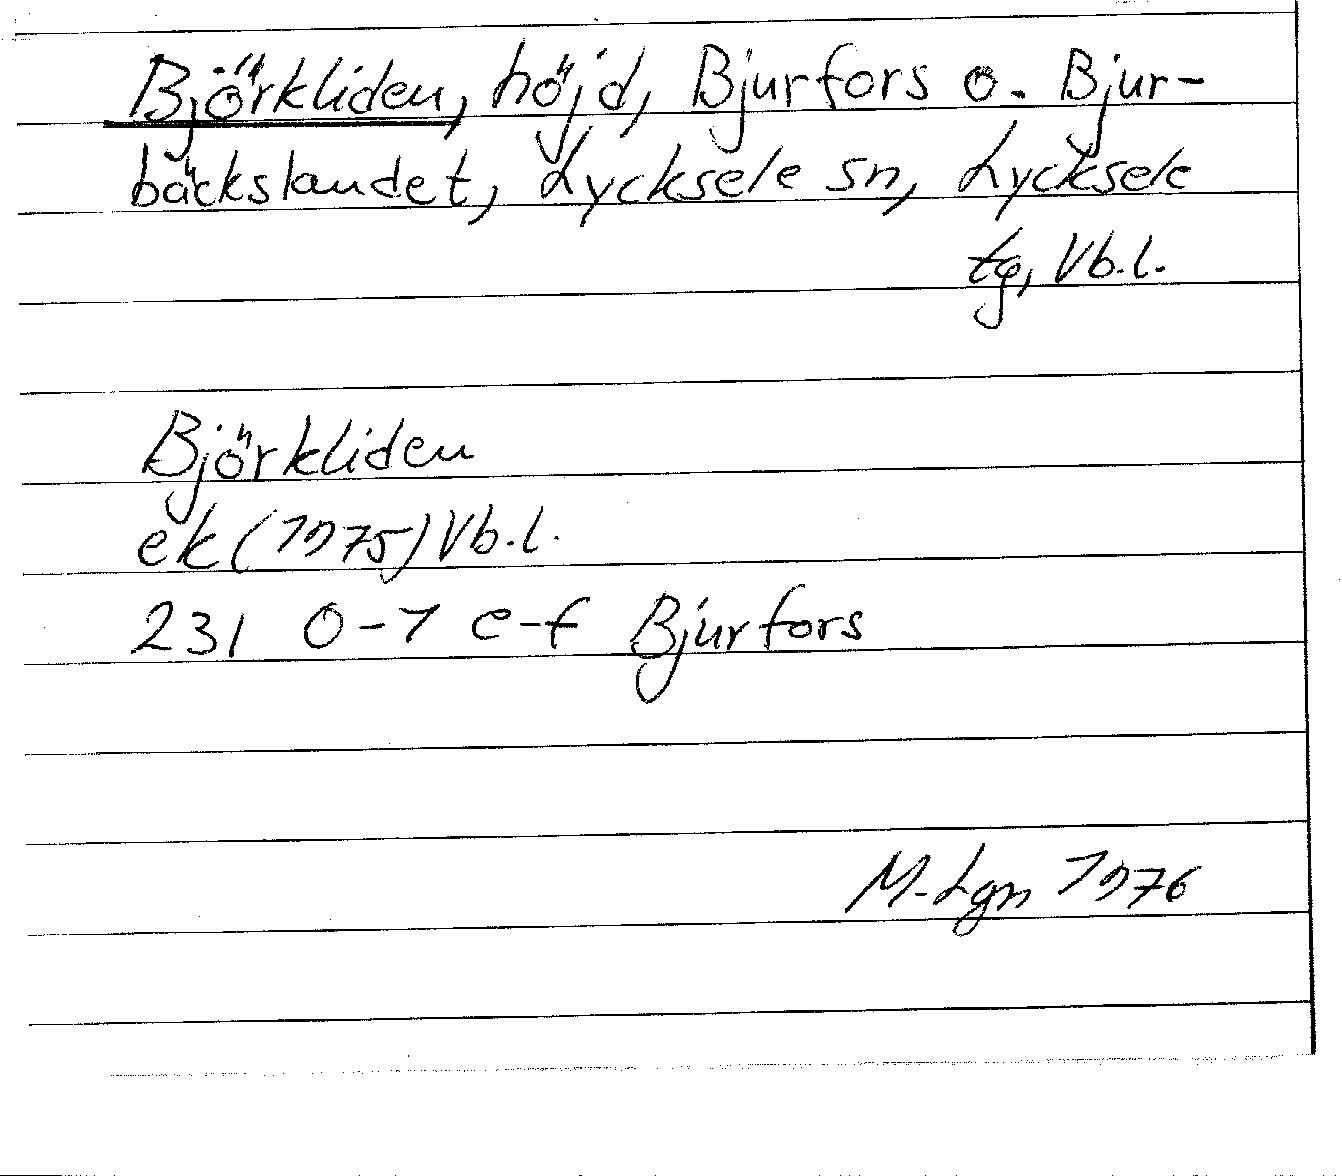 Björkliden, höjd, Bjurfors o. Bjur-
bäckslandet, Lycksele sn, Lycksele
tg, Vb.l.
Björkliden
ek (1975) Vb.l.
231 0-1 e-f Bjurfors
M-Lgn 1976